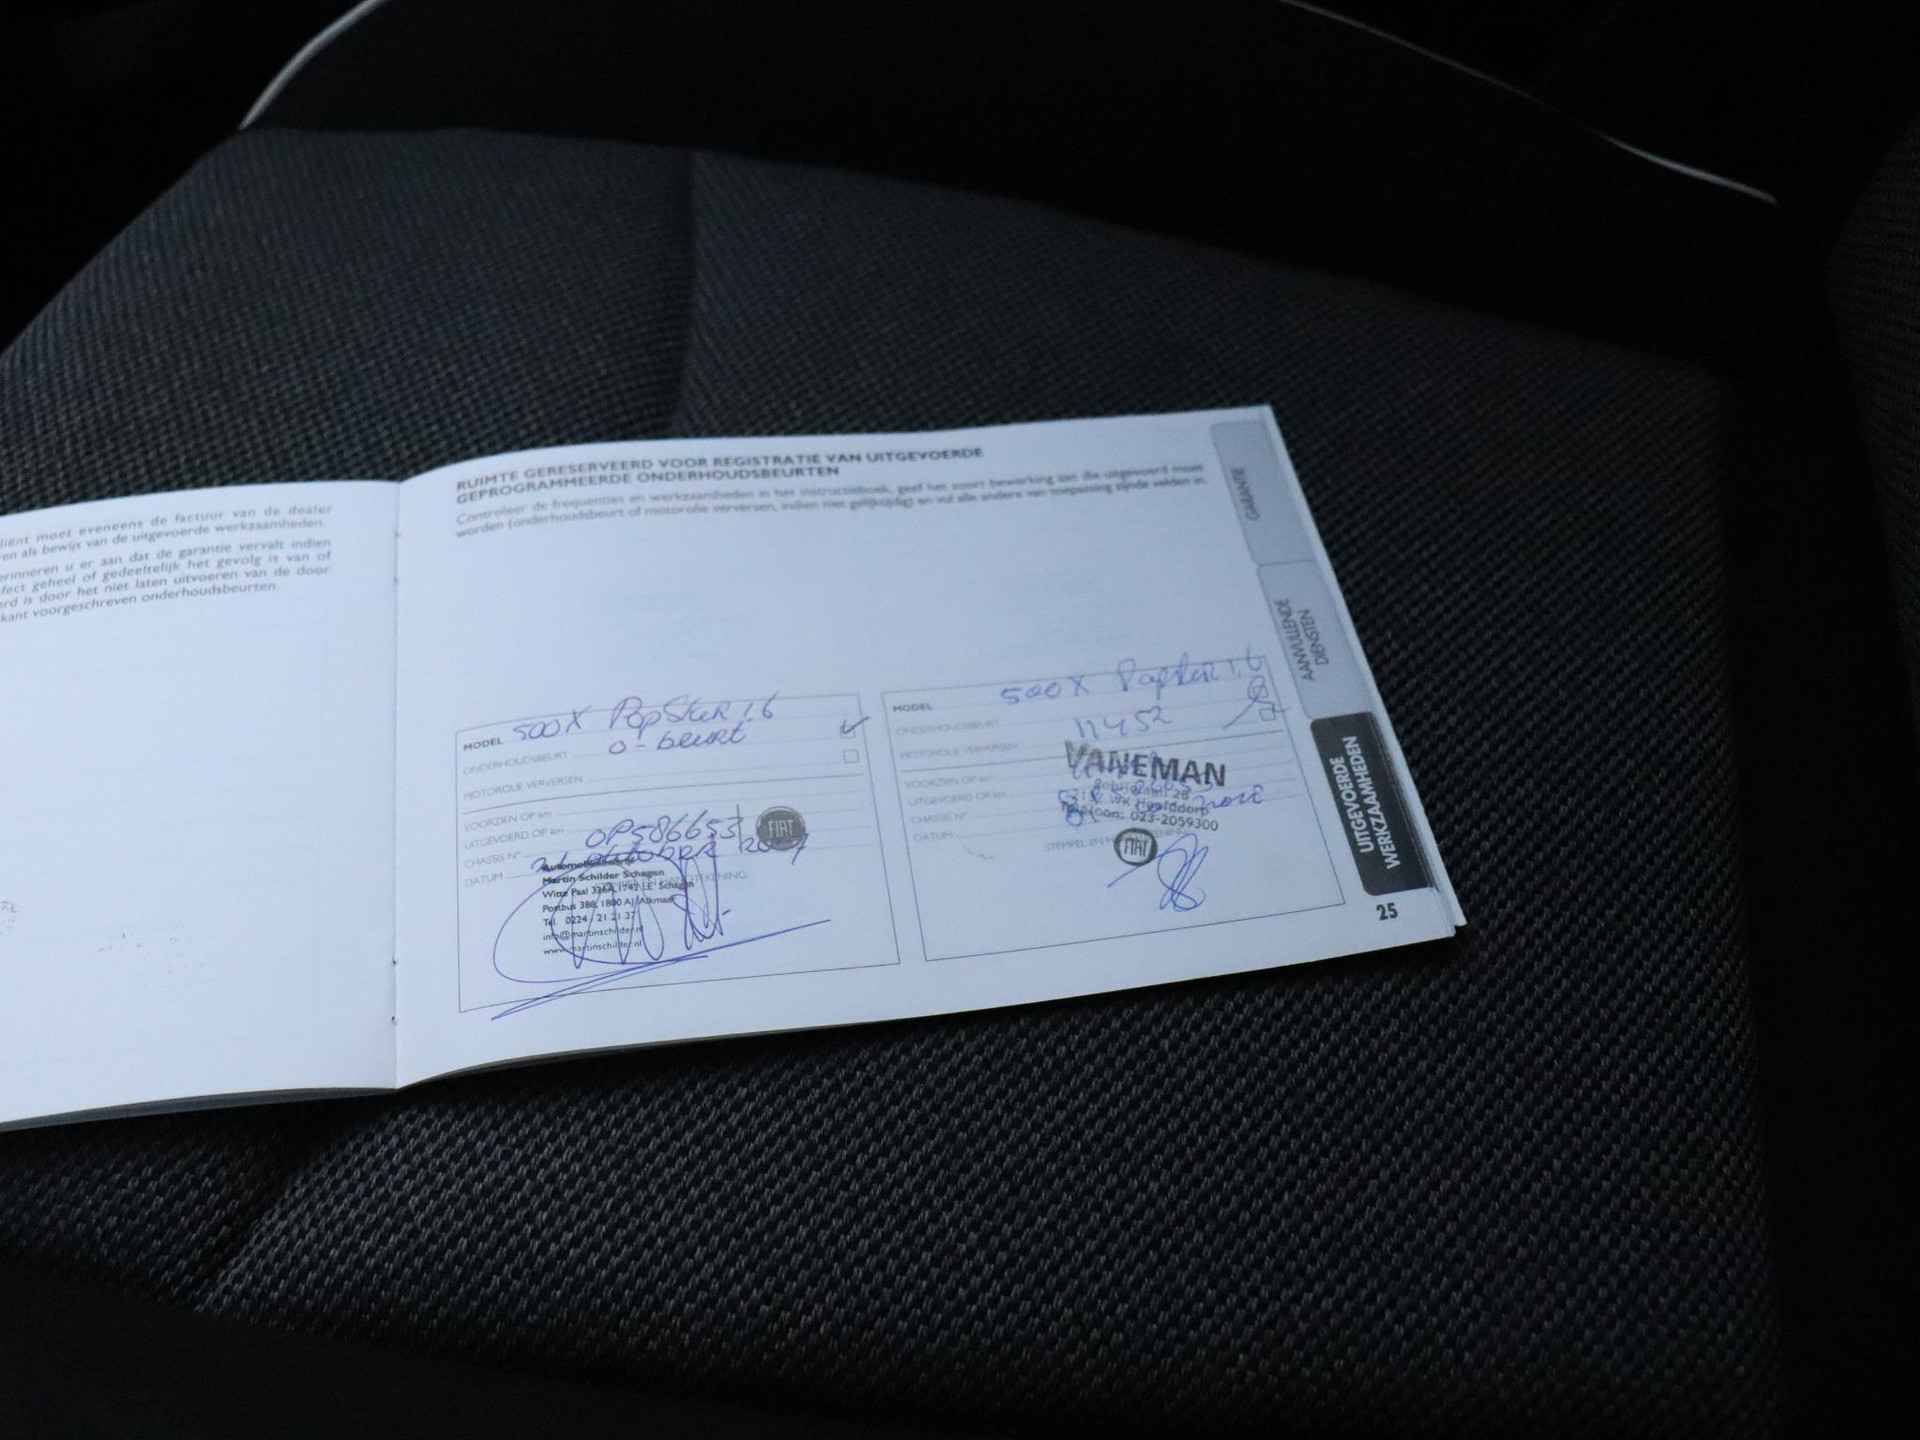 moet eveneens de factuur van de dealer
als bewijs van de uitgevoerde werkzaamheden.
u er aan dat de garantie vervalt indien
geheel of gedeeltelijk het gevolg is van of
is door het niet laten uitvoeren van de door
voorgeschreven onderhoudsbeurten.
RUIMTE GERESERVEERD VOOR REGISTRATIE VAN UITGEVOERDE
GEPROGRAMMEERDE ONDERHOUDSBEURTEN
Controleer de frequenties en werkzaamheden in het instructieboek, geef het soort bewerking aan die uitgevoerd moet
worden (onderhoudsbeurt of motorolie verversen, indien niet gelijktijdig) en vul alle andere van toepassing zijnde velden in.
MODEL 500X PopSter 1.6
ONDERHOUDSBEURT 0-beurt
MOTOROLIE VERVERSEN
VOORZIEN OP km
UITGEVOERD OP km
CHASSIS N° 0P586653
DATUM oktober
FIAT
Martin Schilder Schagen
Witte Paal 336A, 1742 LE Schagen
Postbus 388, 1800 AJ Alkmaar
Tel. 0224 - 21 21 37
info@martinschilder.nl
www.martinschilder.nl
MODEL 500X Popster 1.6
ONDERHOUDSBEURT 11452
MOTOROLIE VERVERSEN
VOORZIEN OP km
UITGEVOERD OP km
CHASSIS N°
DATUM
VANEMAN
28
Hoofddorp
Telefoon: 023-2059300
STEMPEL EN
FIAT
GARANTIE
AANVULLENDE
DIENSTEN
UITGEVOERDE
WERKZAAMHEDEN
25